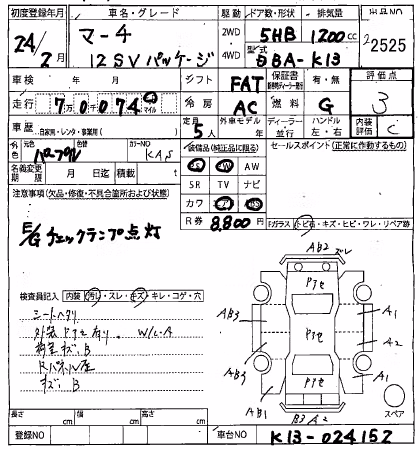 初度登録年月 車名・グレード 駆動 ドア数・形状 排気量 出品NO
24/2月 マーチ 2WD 5HB 1200cc 22525
12SVパッケージ 4WD 型式 DBA-K13
車検 年 月 シフト FAT 保証書 有・無 評価点
走行 7万0千074 km マイル 冷房 AC 燃料 G 3
車歴 自家用・レンタ・事業用( ) 定員 5人 外車モデル 年 ディーラー 並行 ハンドル 左・右 内装評価 C
色 元色 パープル 色替 カラーNO KAS 装備品(純正品に限る) セールスポイント(正常に作動するもの)
名義変更期限 月 日 積載 t PS PW AW
注意事項(欠品・修復・不具合箇所および状態) SR TV ナビ
カワ
R券 8,800円
E/Gチェックランプ点灯
Fガラス トビ石・キズ・ヒビ・ワレ・リペア跡
検査員記入 内装 汚レ・スレ・キズ・キレ・コゲ・穴
シートヘタリ
外装 有り. W/L.A
キズ.B
Rパネル
キズ.B
AB2 ズレ
AB3 A1
A2
AB3 A1
AB1
B3 A2
スペア
長さ cm 幅 cm 高さ cm
登録NO 車台NO K13-024152